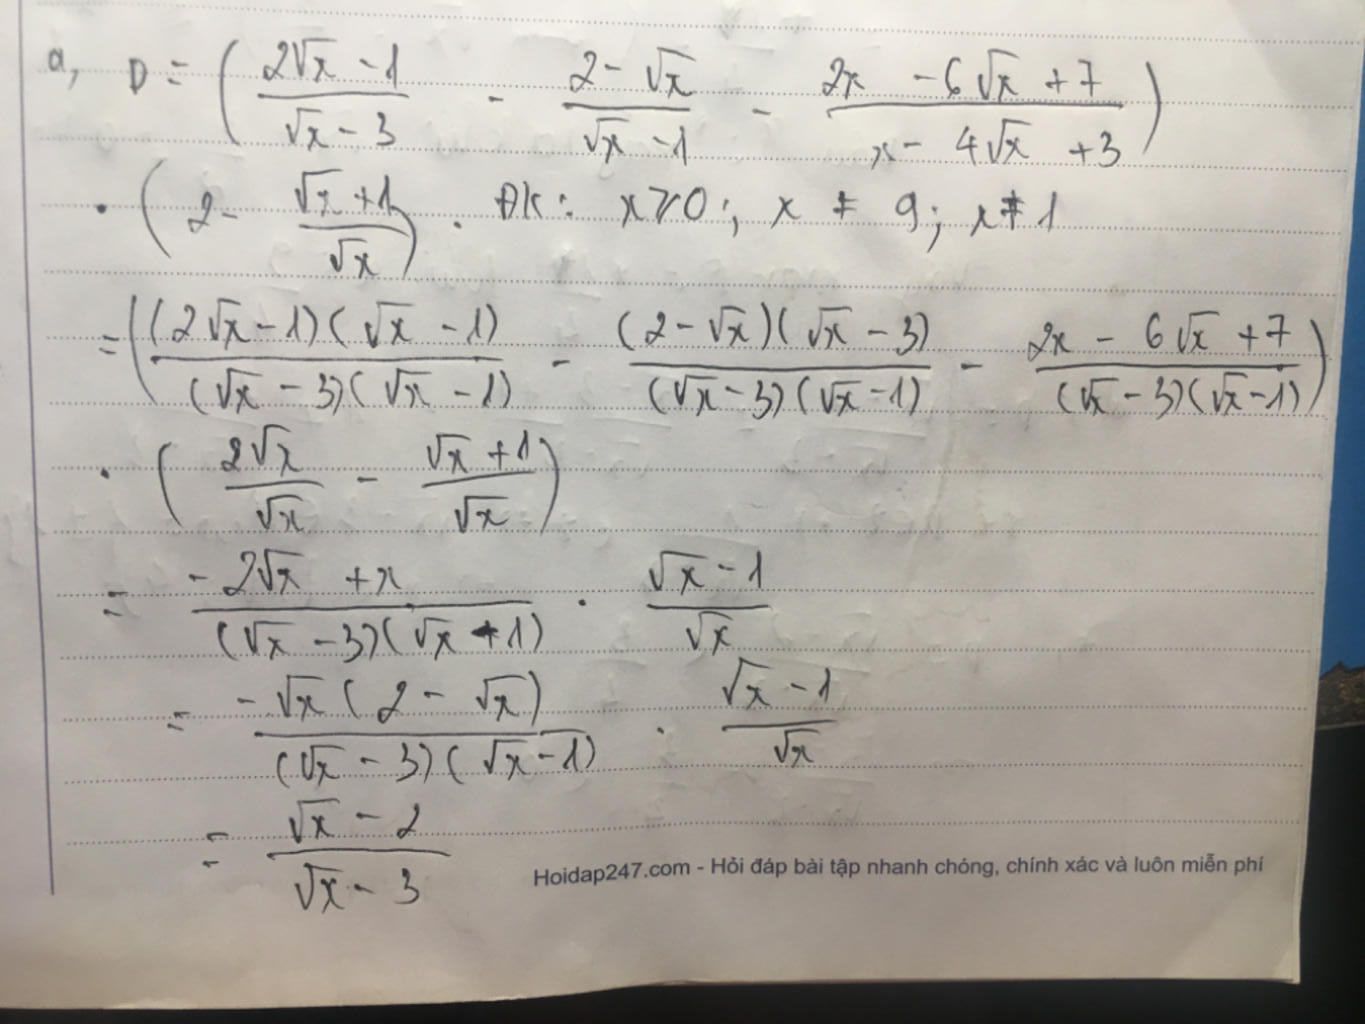 a, D = ( (2√x - 1)/(√x - 3) - (2 - √x)/(√x - 1) - (2x - 6√x + 7)/(x - 4√x + 3) )
. ( 2 - (√x + 1)/√x ) . ĐK: x > 0; x ≠ 9; x ≠ 1
= ( ((2√x - 1)(√x - 1))/((√x - 3)(√x - 1)) - ((2 - √x)(√x - 3))/((√x - 3)(√x - 1)) - (2x - 6√x + 7)/((√x - 3)(√x - 1)) )
. ( 2√x/√x - (√x + 1)/√x )
= (-2√x + x)/((√x - 3)(√x - 1)) . (√x - 1)/√x
= (-√x(2 - √x))/((√x - 3)(√x - 1)) . (√x - 1)/√x
= (√x - 2)/(√x - 3)
Hoidap247.com - Hỏi đáp bài tập nhanh chóng, chính xác và luôn miễn phí